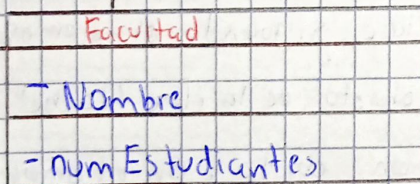 Facultad
- Nombre
- numEstudiantes